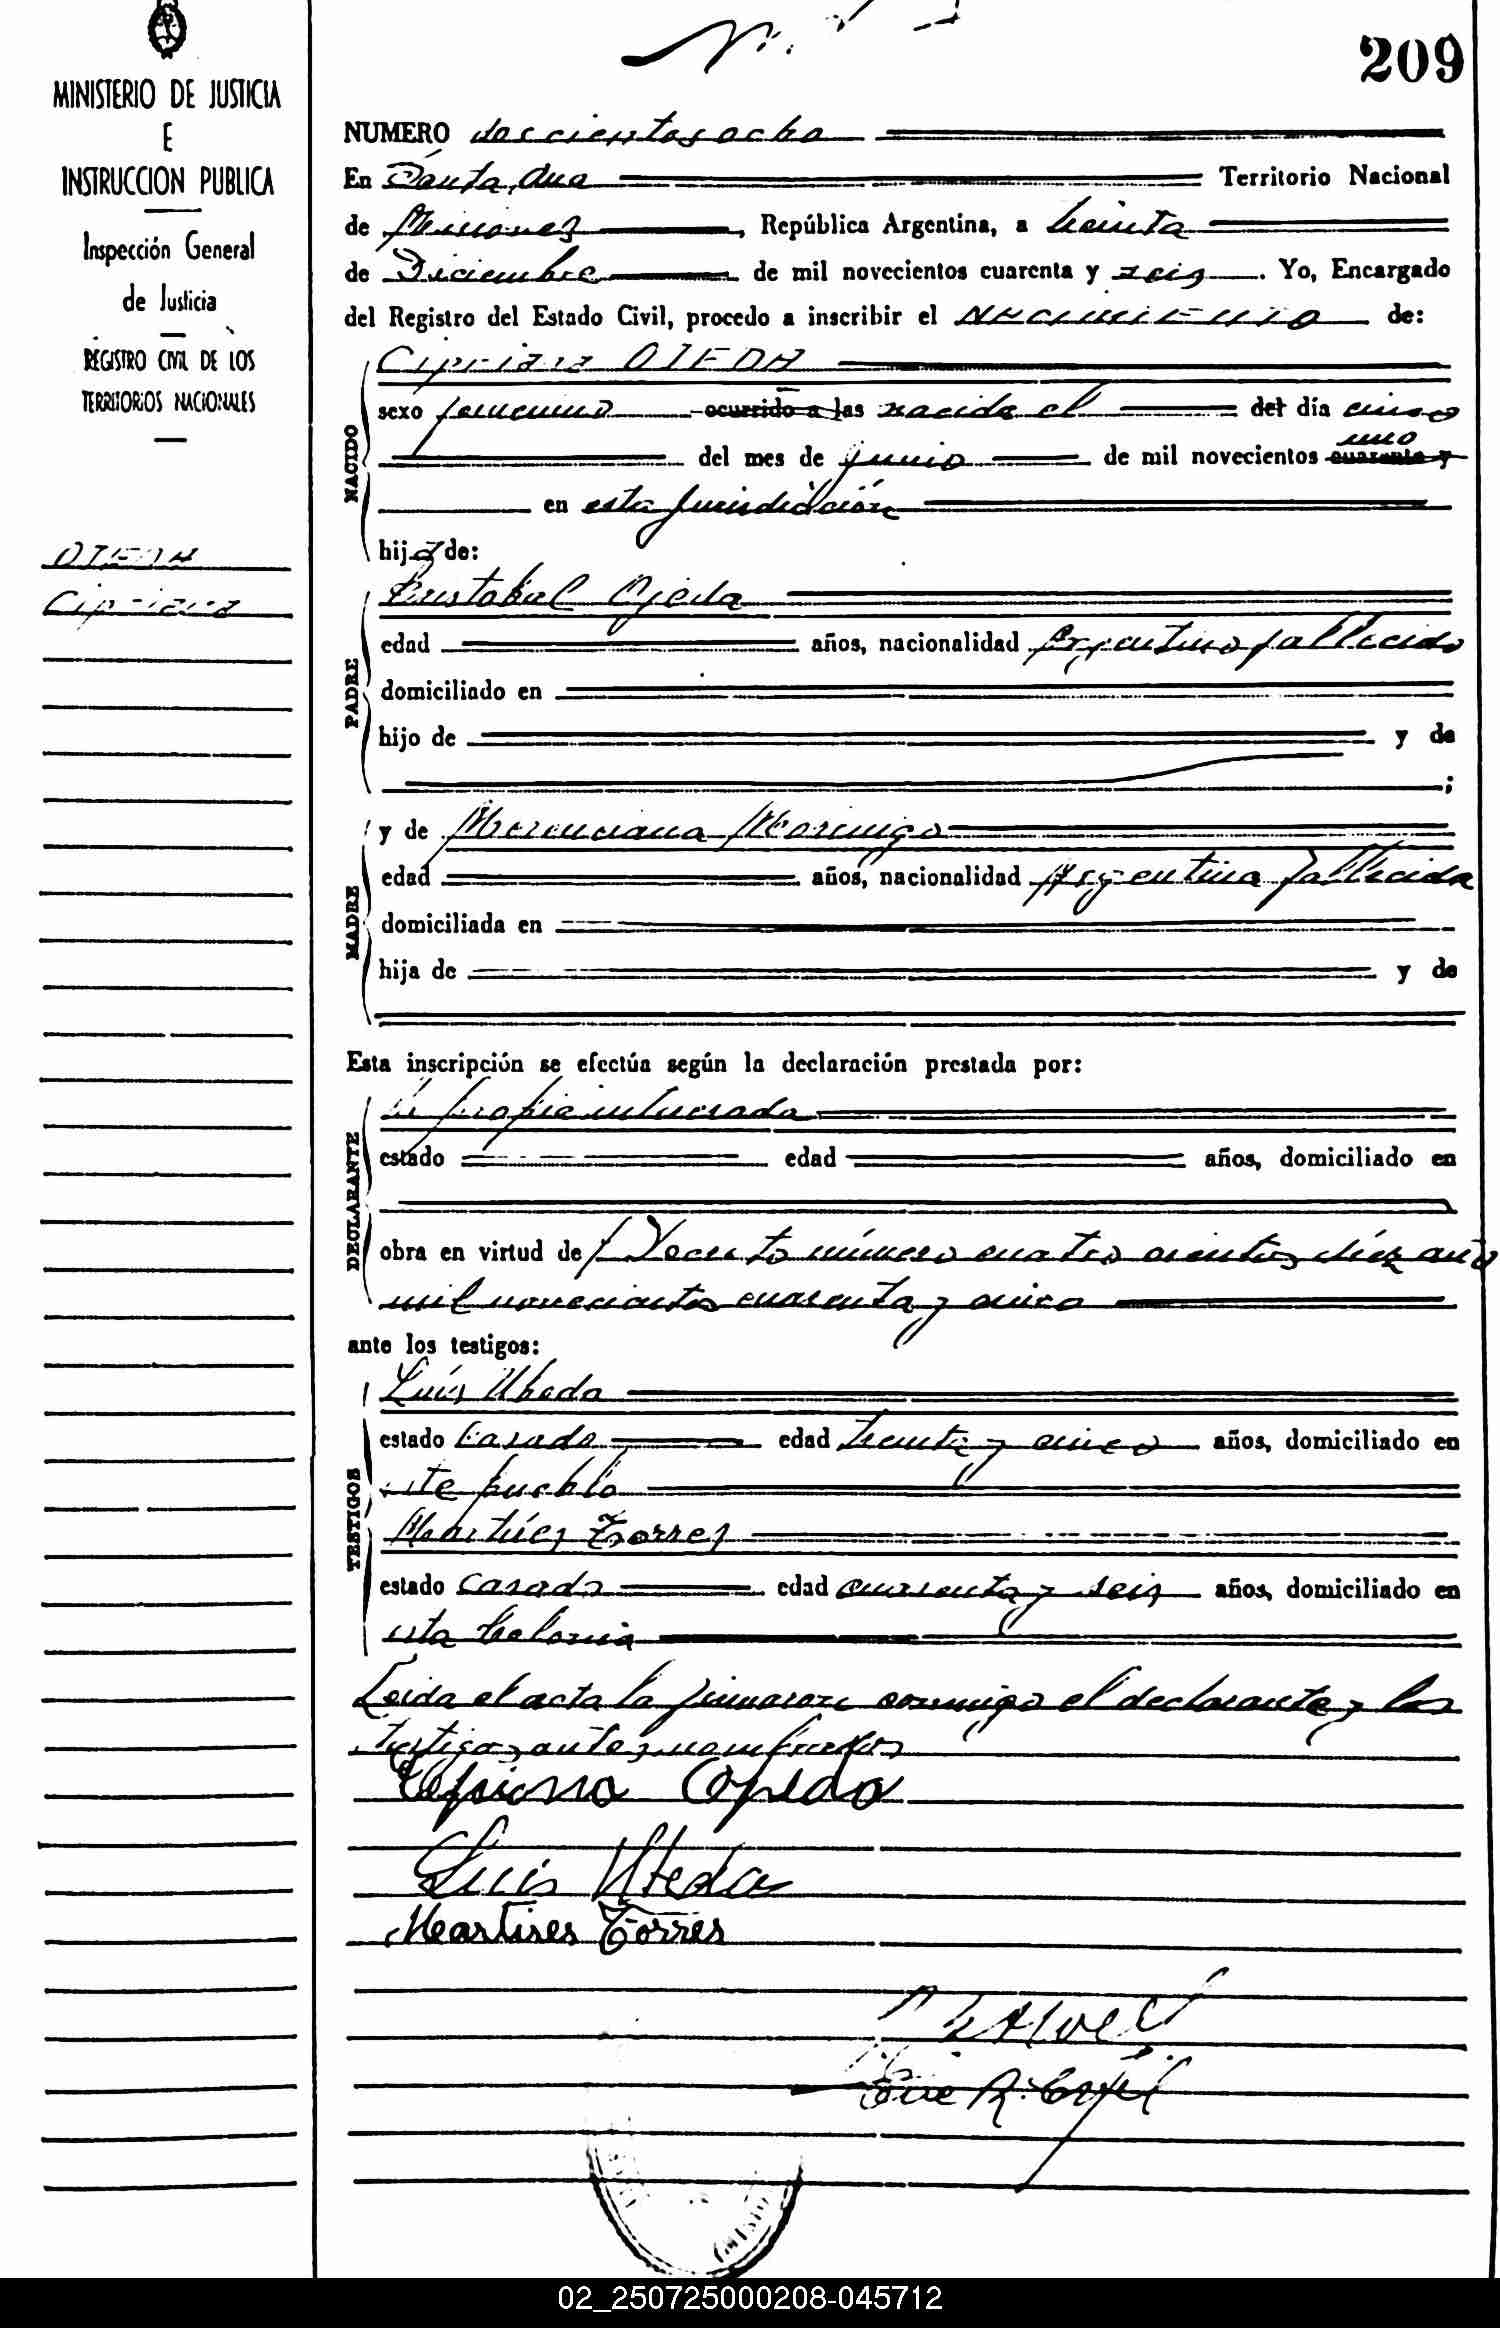 209
MINISTERIO DE JUSTICIA
E
INSTRUCCION PUBLICA
Inspección General
de Justicia
REGISTRO CIVIL DE LOS
TERRITORIOS NACIONALES
OJEDA
Cipriana
NUMERO doscientos ocho
En Santa Ana Territorio Nacional
de Misiones, República Argentina, a treinta
de Diciembre de mil novecientos cuarenta y seis. Yo, Encargado
del Registro del Estado Civil, procedo a inscribir el nacimiento de:
NACIDO
Cipriana OJEDA
sexo femenino ocurrido a las nacida el del día cinco
uno
del mes de junio de mil novecientos cuarenta y
en esta Jurisdicción
hija de:
PADRE
Cristobal Ojeda
edad años, nacionalidad Argentino fallecido
domiciliado en
hijo de y de
;
MADRE
y de Merenciana Moringo
edad años, nacionalidad Argentina fallecida
domiciliada en
hija de y de
Esta inscripción se efectúa según la declaración prestada por:
DECLARANTE
la propia interesada
estado edad años, domiciliado en
obra en virtud de Decreto número cuatro cientos diez año
mil novecientos cuarenta y cinco
ante los testigos:
TESTIGOS
Luis Ubeda
estado Casado edad treinta y cinco años, domiciliado en
este pueblo
Martires Torres
estado Casado edad cuarenta y seis años, domiciliado en
esta Colonia
Leida el acta la firmaron conmigo el declarante y los
testigos antes nombrados
Cipriana Ojeda
Luis Ubeda
Martires Torres
02_250725000208-045712